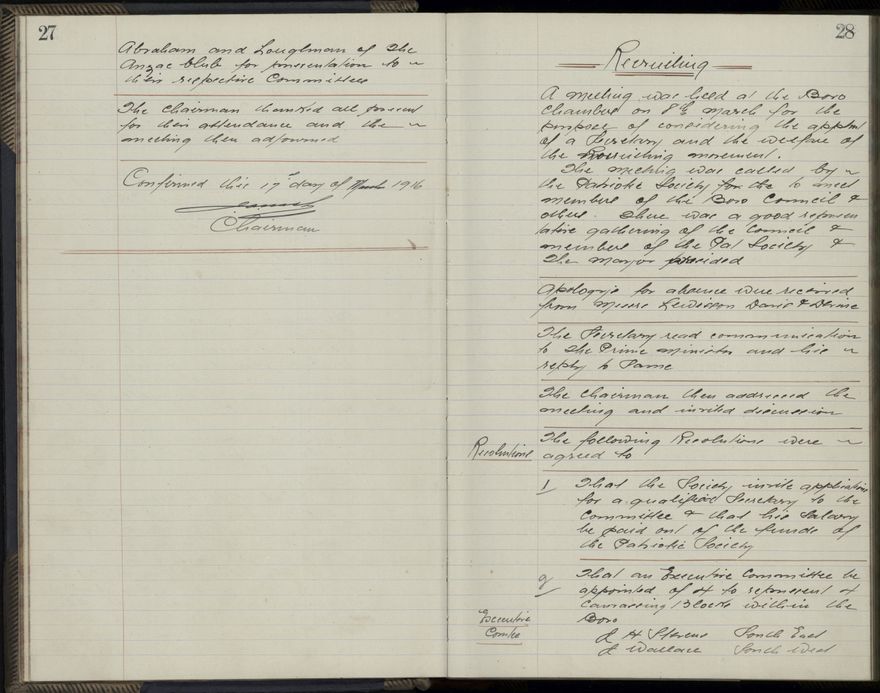 27
Abraham and Loughman of the
Anzac Club for presentation to
their respective Committees
The Chairman thanked all present
for their attendance and the
meeting then adjourned
Confirmed this 17th day of March 1916
Chairman
28
Recruiting
A meeting was held at the Boro
Chambers on 8th March for the
purpose of considering the apptmt
of a Secretary and the welfare of
the Recruiting movement.
The meeting was called by
the Patriotic Society for the to meet
members of the Boro Council &
others. There was a good represen
tative gathering of the Council &
members of the Pat Society &
The Mayor presided
Apologys for absence were received
from Messrs Lewisson Davis &
The Secretary read communication
to the Prime Minister and his
reply to same
The Chairman then addressed the
meeting and invited discussion
Resolutions
The following Resolutions were
agreed to
1 That the Society invite applications
for a qualified Secretary to the
Committee & that his Salary
be paid out of the funds of
the Patriotic Society
2 That an Executive Committee be
appointed of 4 to represent 4
Canvassing Blocks within the
Boro
Executive
Comtee
J H Stevens South East
J Wallace South West